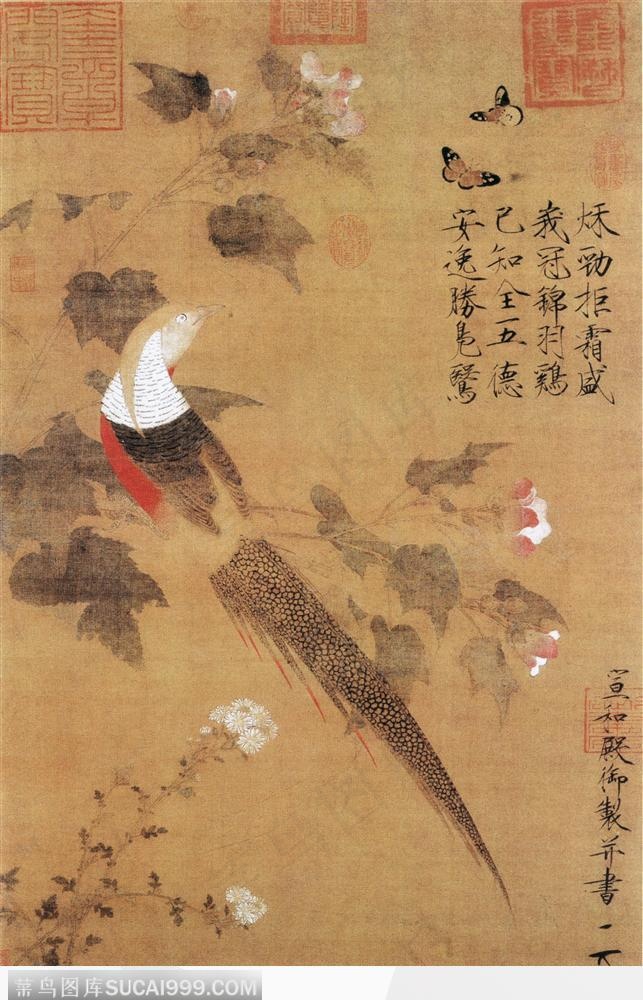 秋勁拒霜盛
峩冠錦羽鷄
已知全五德
安逸勝鳧鷖
宣和殿御製并書
菜鸟图库 SUCAI999.COM